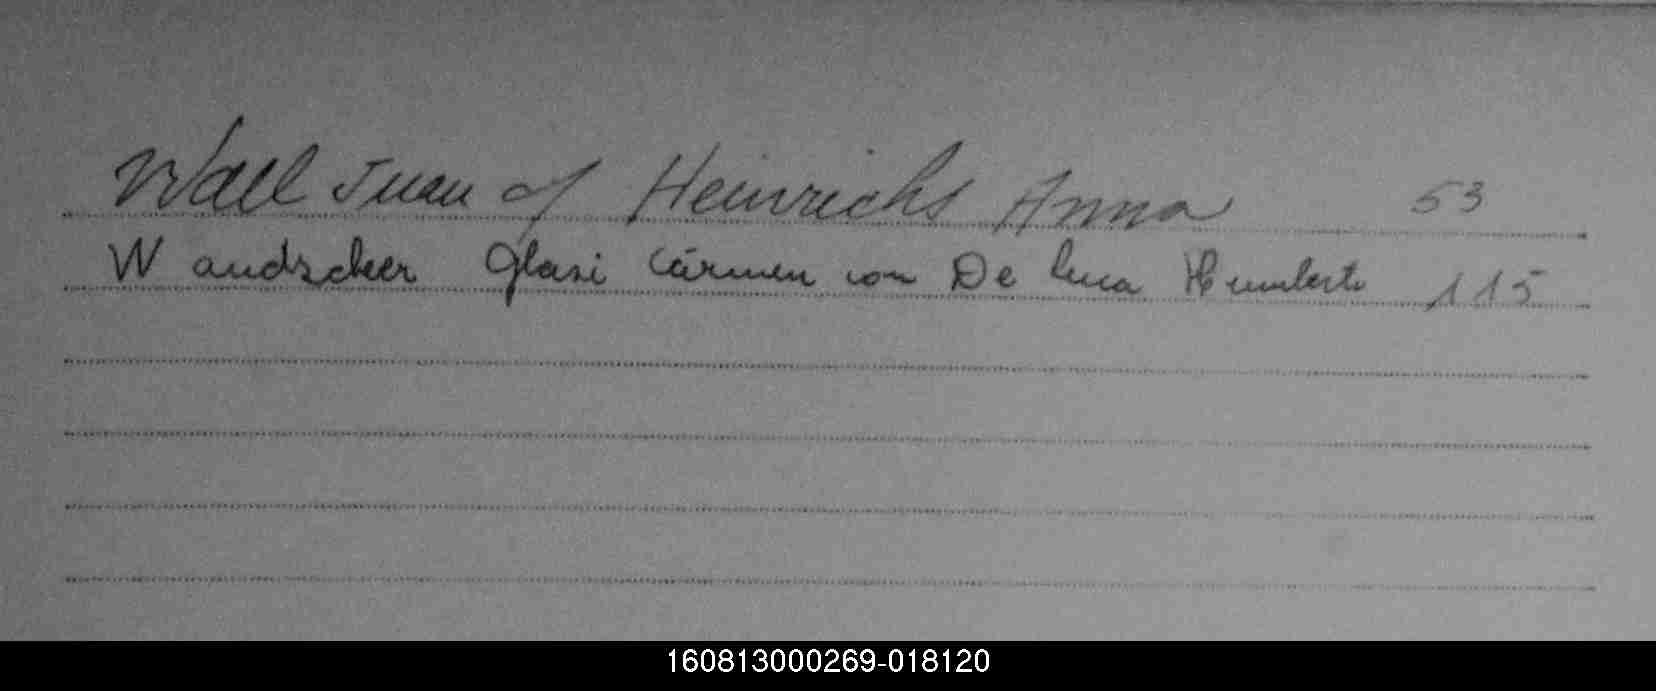 Wall Juan y Heinrichs Anna 53
Wandscheer Glasi Cármen con De Luca Humberto 115
160813000269-018120